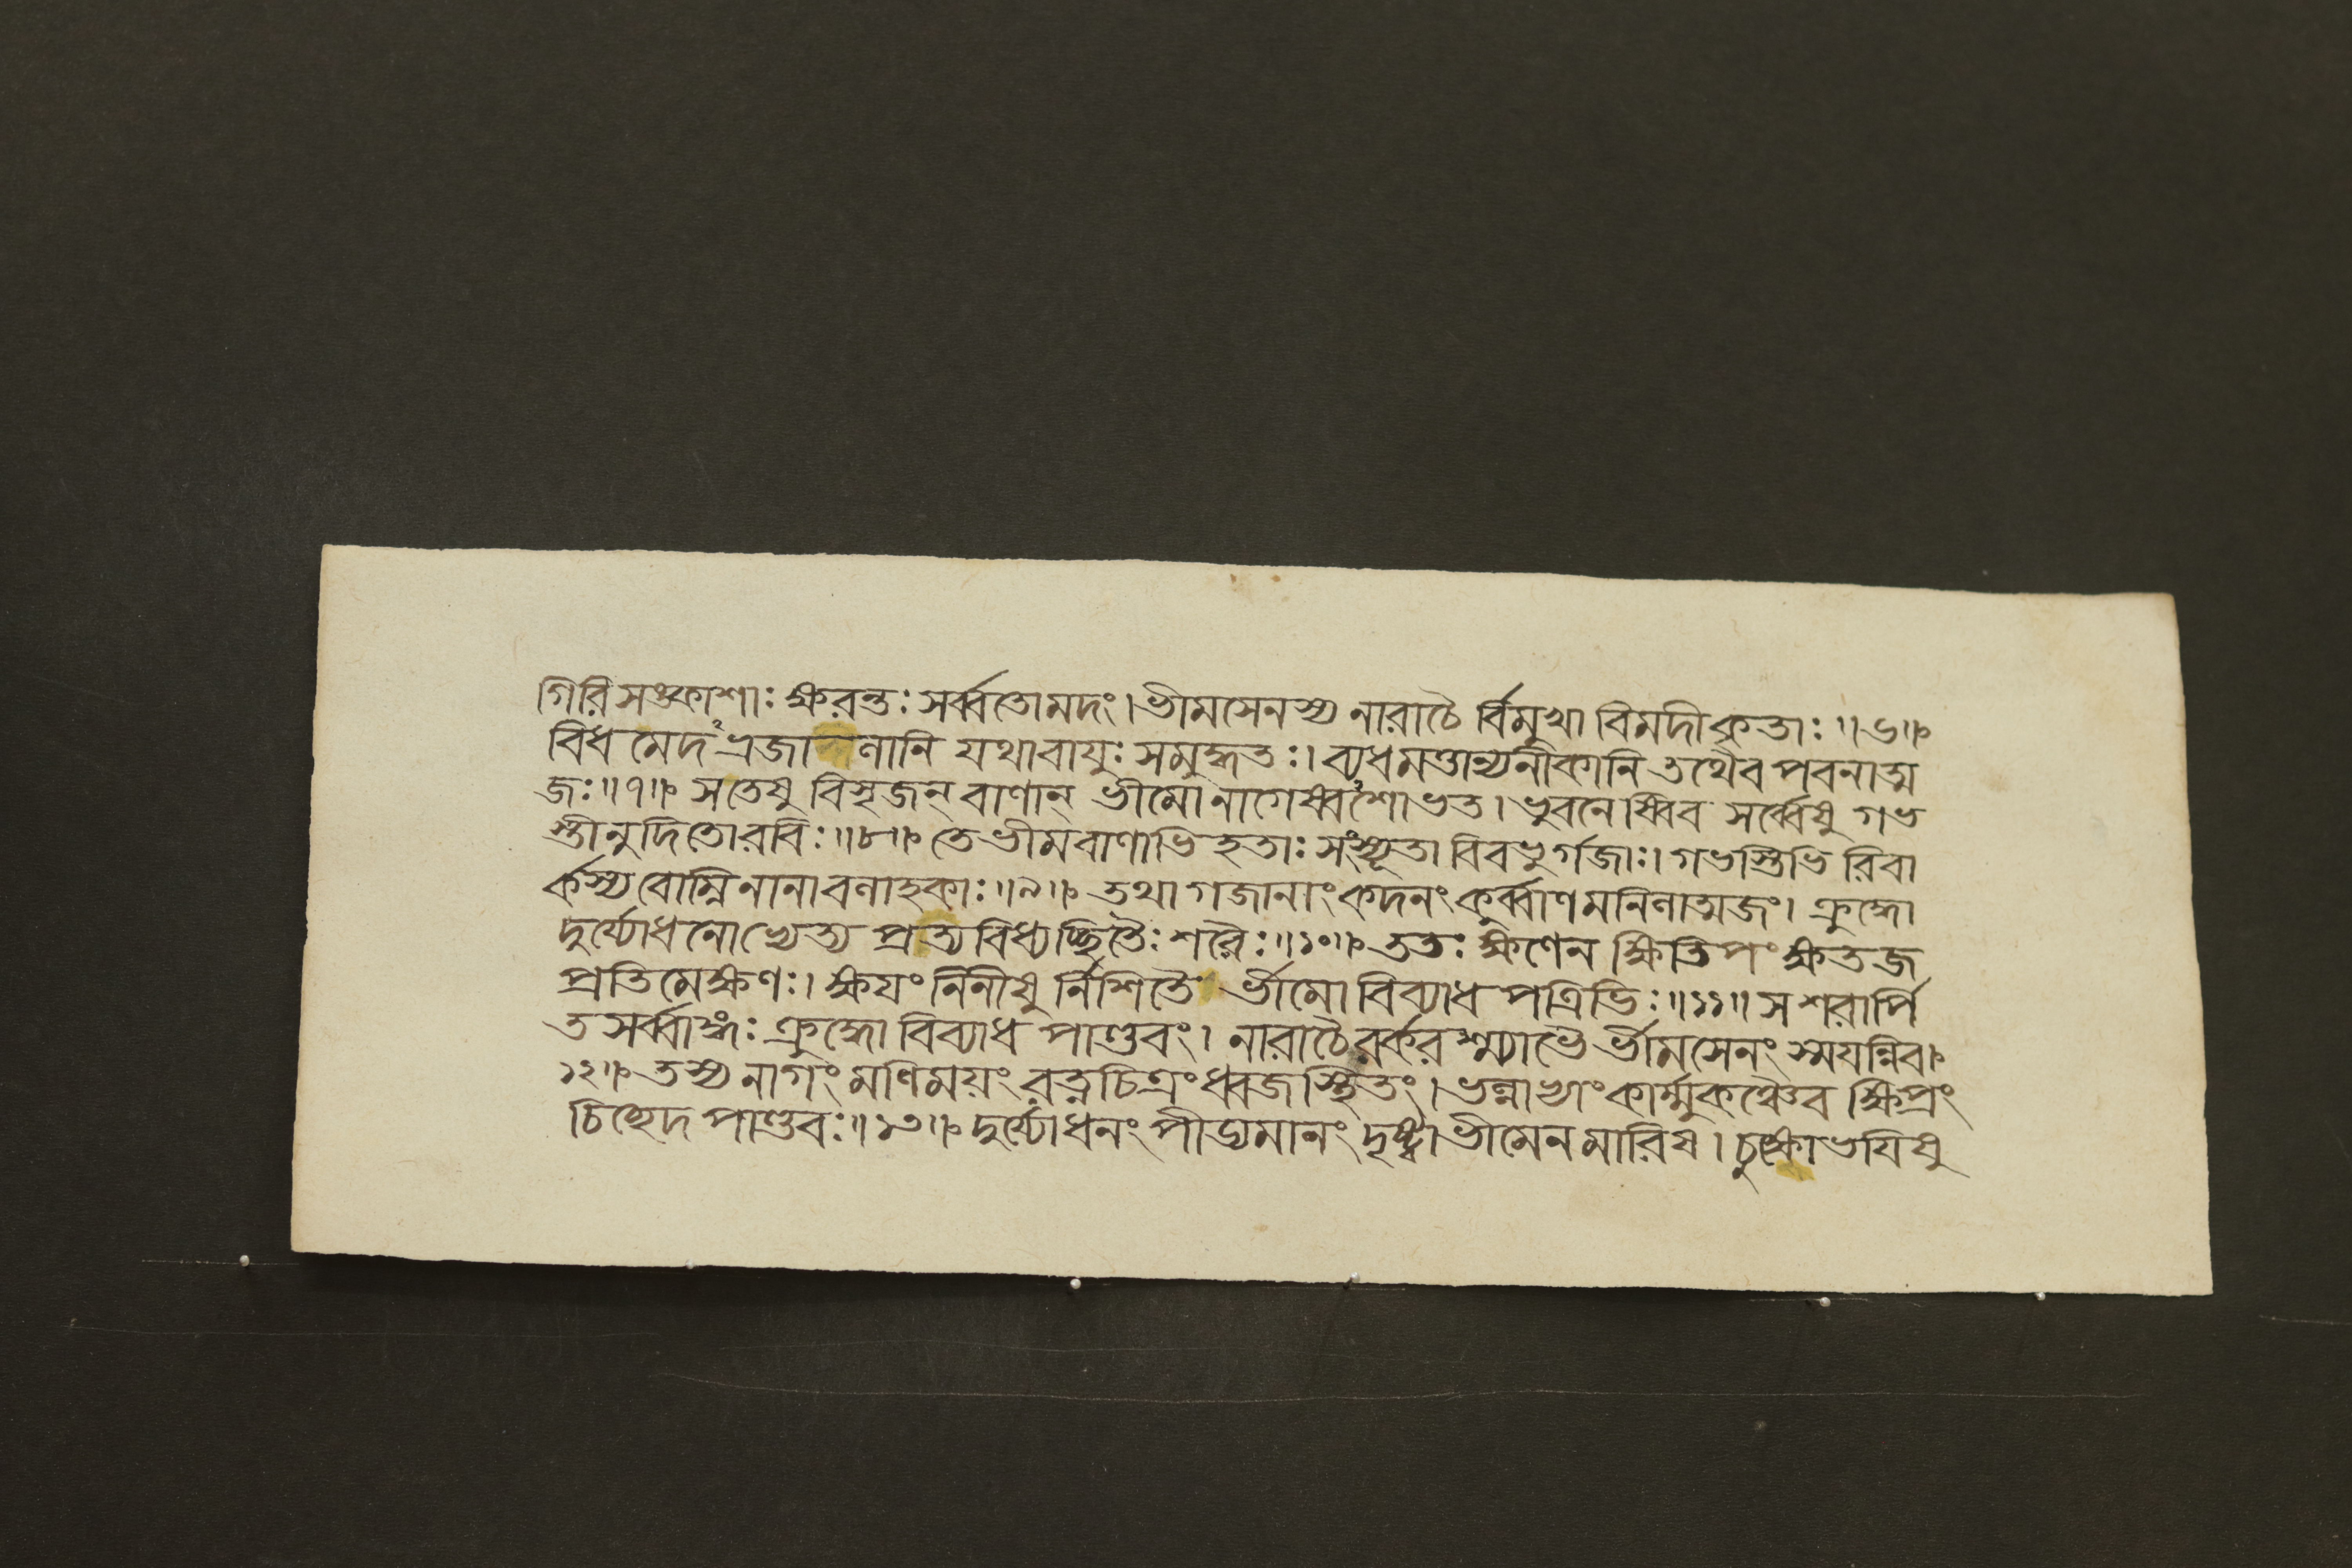 গিরিসঙ্কাশাঃ ক্ষরন্তঃ সর্ব্বতোমদং। ভীমসেনস্য নারাচৈ র্বিমুখা বিমদীকৃতাঃ॥৬॥
বিধমেদভ্রজালানি যথাবায়ুঃ সমুদ্ধতঃ। ব্যধমত্তান্যনীকানি তথৈব পবনাত্ম
জঃ॥৭॥ সতেষু বিসৃজন্ বাণান্ ভীমোনাগেষ্বশোভত। ভুবনেষ্বিব সর্ব্বেষু গভ
স্তীনুদিতোরবিঃ॥৮॥ তে ভীমবাণাভিহতাঃ সংস্যূতা বিবভুর্গজাঃ। গভস্তিভি রিবা
র্কস্য বোম্নি নানাবলাহকাঃ॥৯॥ তথা গজানাং কদনং কুর্ব্বাণমনিলাত্মজং। ক্রুদ্ধো
দুর্য্যোধনোভ্যেত্য প্রত্যবিধ্যচ্ছিতৈঃ শরৈঃ॥১০॥ ততঃ ক্ষণেন ক্ষিতিপং ক্ষতজ
প্রতিমেক্ষণঃ। ক্ষয়ং নিনীষু র্নিশিতৈ র্ভীমো বিব্যাধ পত্রিভিঃ॥১১॥ স শরার্পি
ত সর্ব্বাঙ্গঃ ক্রুদ্ধো বিব্যাধ পাণ্ডবং। নারাচৈরর্করশ্ম্যাভৈ র্ভীমসেনং স্ময়ন্নিব॥
১২॥ তস্য নাগং মণিময়ং রত্নচিত্রং ধ্বজস্থিতং। ভল্লাভ্যাং কার্ম্মুকঞ্চৈব ক্ষিপ্রং
চিচ্ছেদ পাণ্ডবঃ॥১৩॥ দুর্য্যোধনং পীড্যমানং দৃষ্ট্বা ভীমেন মারিষ। চুক্ষোভয়িষু